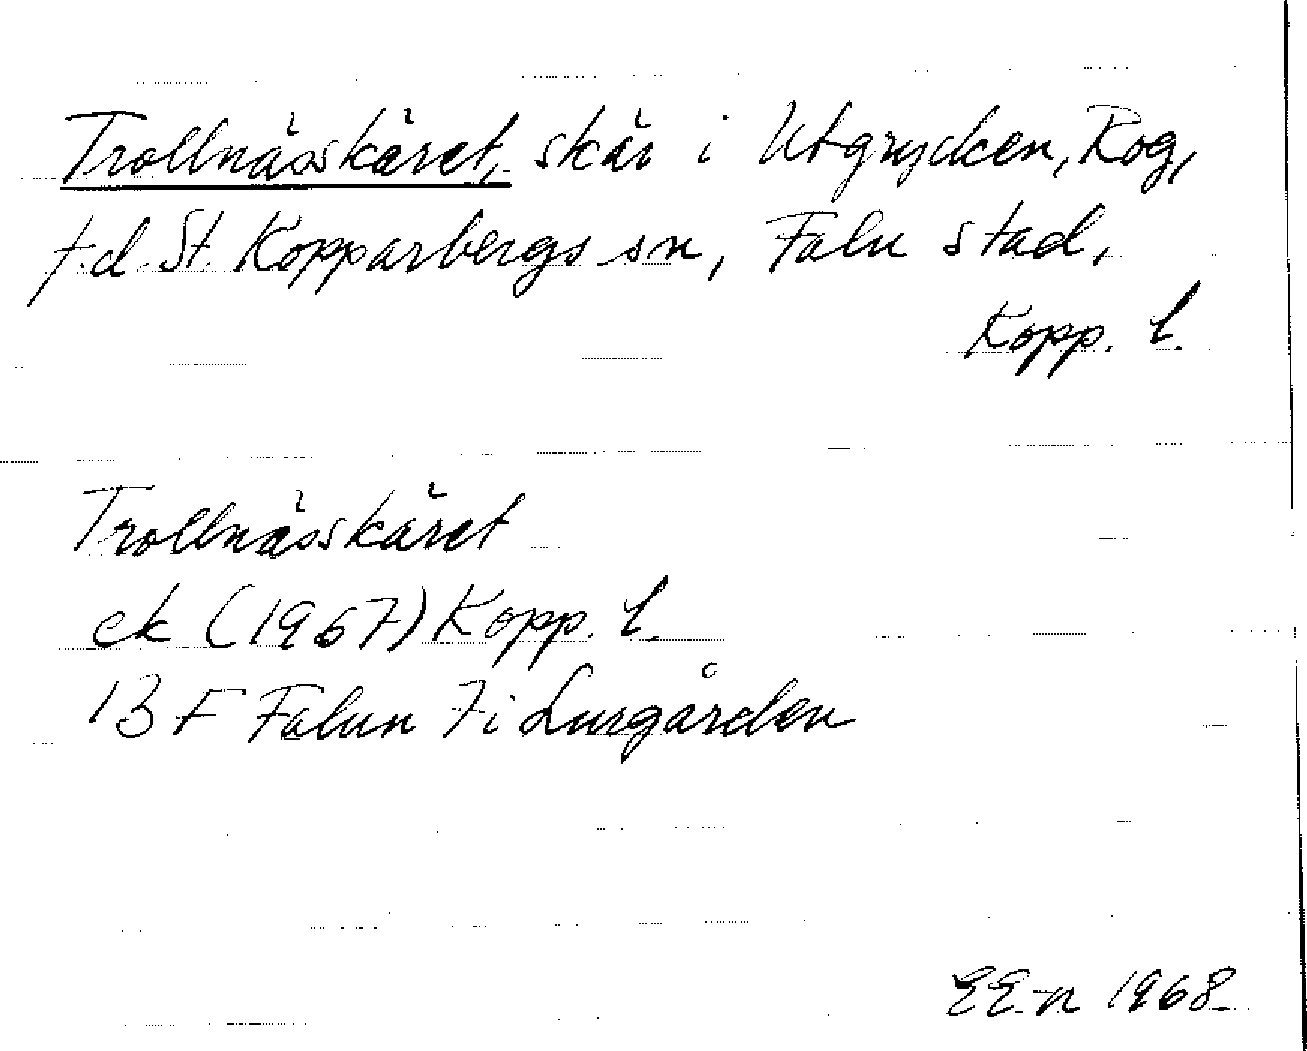 Trollnässkäret, skär i Utgrycken, Rog,
f.d. St. Kopparbergs sn, Falu stad,
Kopp. l.
Trollnässkäret
ek (1967) Kopp. l.
13 F Falun 7i Lurgården
EE-n 1968